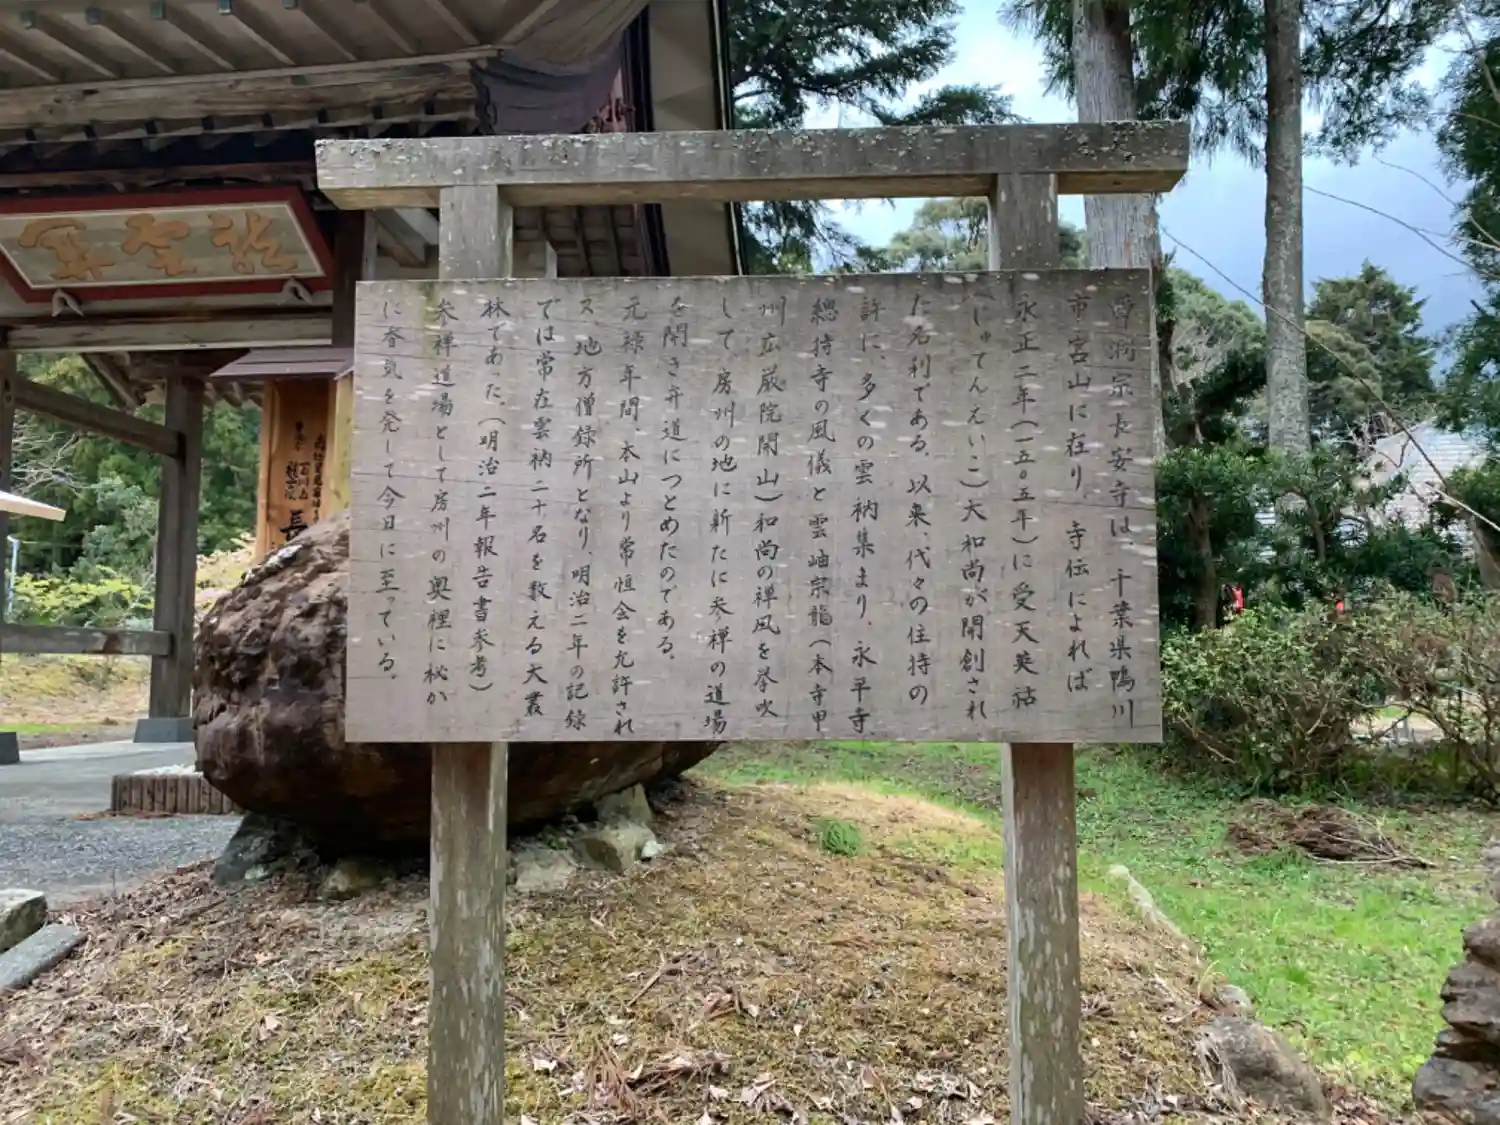 曹洞宗長安寺は、千葉県鴨川
市宮山に在り、寺伝によれば
永正二年(一五〇五年)に受天英祜
(じゅてんえいこ)大和尚が開創され
た名刹である。以来、代々の住持の
許に、多くの雲衲集まり、永平寺、
總持寺の風儀と雲岫宗龍(本寺甲
州広厳院開山)和尚の禅風を挙吹
して、房州の地に新たに参禅の道場
を開き弁道につとめたのである。
元禄年間、本山より常恒会を允許され
又、地方僧録所となり、明治二年の記録
では常在雲衲二十名を数える大叢
林であった。(明治二年報告書参考)
参禅道場として房州の奥裡に秘か
に香気を発して今日に至っている。
長